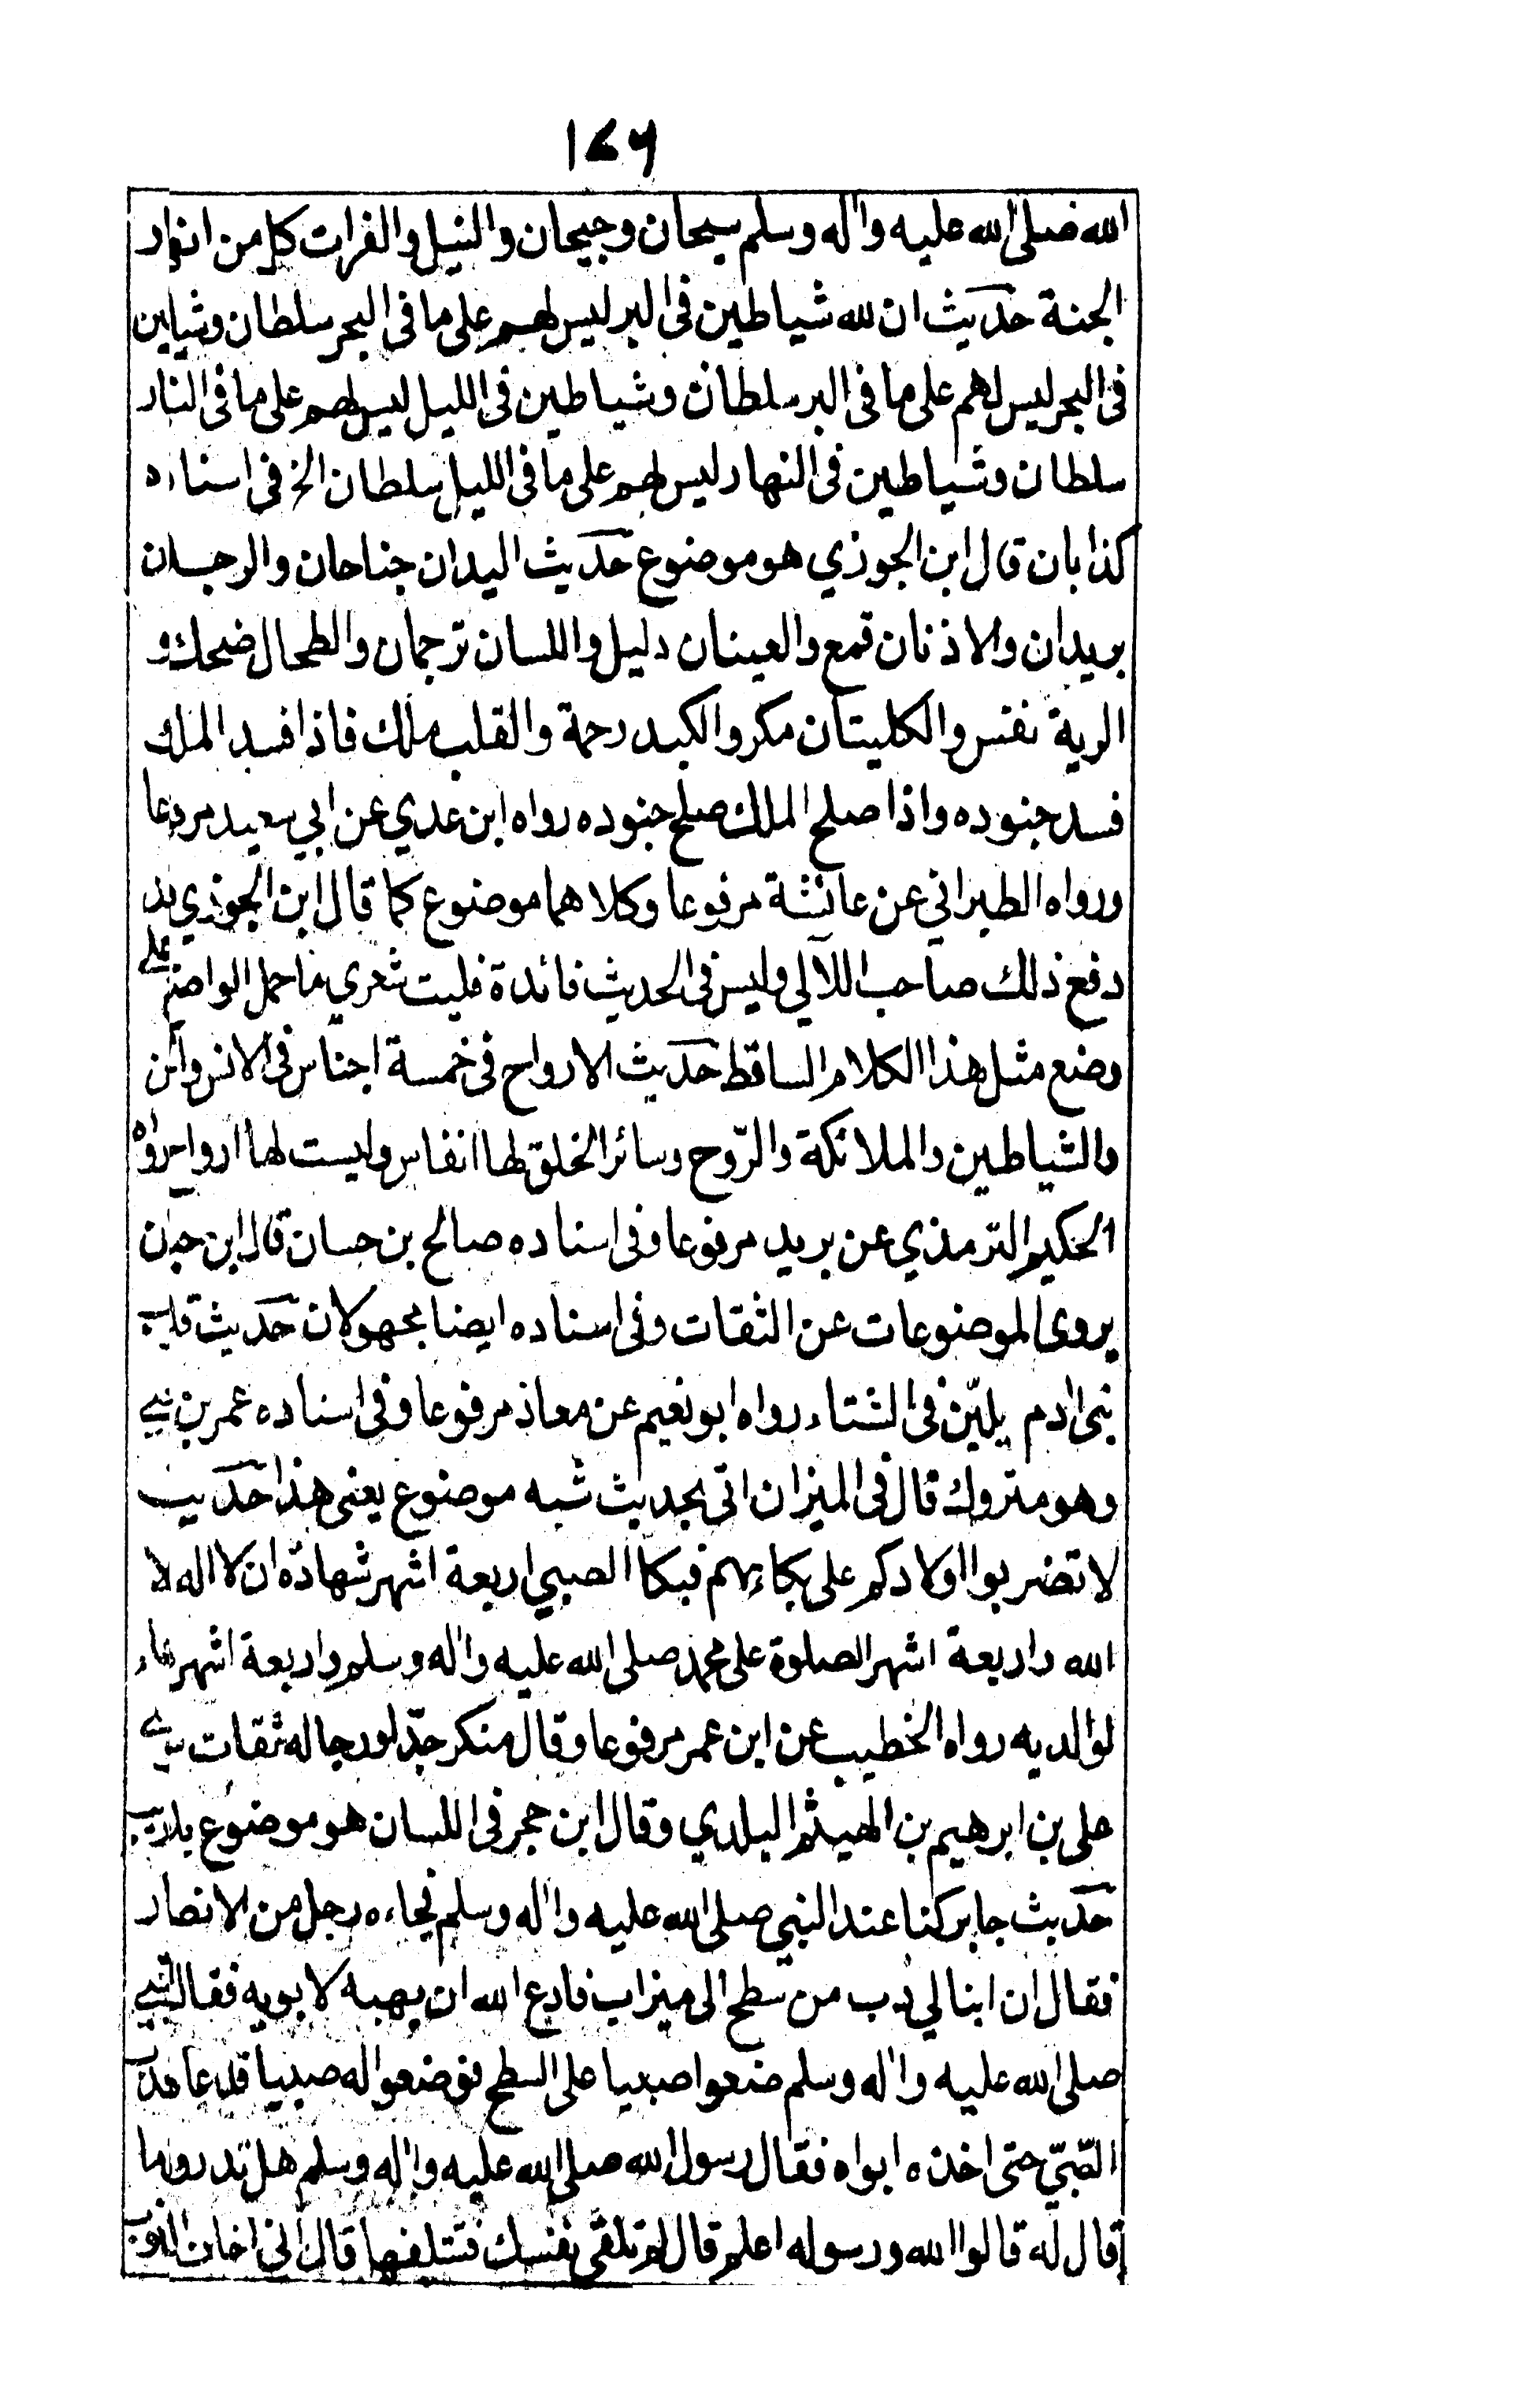 ١٧٦
الله صلى الله عليه واٰله وسلم سيحان وجيحان والنيل والفرات كل من انهار
الجنة حديث ان لله شياطين فى البر ليس لهم على ما فى البحر سلطان وشياطين
فى البحر ليس لهم على ما فى البر سلطان وشياطين فى الليل ليس لهم على ما فى النهار
سلطان وشياطين فى النهار ليس لهم على ما فى الليل سلطان الخ فى اسناده
كذابان قال ابن الجوزي هو موضوع حديث اليدان جناحان والرجلان
بريدان والاذنان قمع والعينان دليل واللسان ترجمان والطحال ضحك و
الرية نفس والكليتان مكر والكبد رحمة والقلب ملك فاذا فسد الملك
فسد جنوده واذا صلح الملك صلح جنوده رواه ابن عدي عن ابي سعيد مرفوعا
ورواه الطبراني عن عائشة مرفوعا وكلاهما موضوع كما قال ابن الجوزي بد
دفع ذلك صاحب اللآلي وليس فى الحديث فائدة فليت شعري ما حمل الواضع على
وضع مثل هذا الكلام الساقط حديث الارواح فى خمسة اجناس فى الانس والجن
والشياطين والملائكة والرّوح وسائر الخلق لها انفاس وليست لها ارواح رواه
الحكيم الترمذي عن بريد مرفوعا وفى اسناده صالح بن حسان قال ابن حبان
يروى الموضوعات عن الثقات وفى اسناده ايضا مجهولان حديث قلب
بنى اٰدم يليّن فى الشتاء رواه ابو نعيم عن معاذ مرفوعا وفى اسناده عمر بن يحيى
وهو متروك قال فى الميزان اتى بحديث شبه موضوع يعنى هذا حديث
لا تضربوا اولادكم على بكاءهم فبكا الصبي اربعة اشهر شهادة ان لا اله لا
الله واربعة اشهر الصلوة على محمد صلى الله عليه واٰله وسلم واربعة اشهر دعاء
لوالديه رواه الخطيب عن ابن عمر مرفوعا وقال منكر جدّا ورجاله ثقات سوى
على بن ابرهيم بن الهيثم البلدي وقال ابن حجر فى اللسان هو موضوع بلا ريب
حديث جابر كنا عند النبي صلى الله عليه واٰله وسلم فجاءه رجل من الانصار
فقال ان ابنا لي دب من سطح الى ميزاب فادع الله ان يهبه لابويه فقال النبي
صلى الله عليه واٰله وسلم ضعوا صبيا على السطح فوضعوا له صبيا
الصّبيّ حتى اخذه ابواه فقال رسول الله صلى الله عليه واٰله وسلم هل تدرون ما
قال له قالوا الله ورسوله اعلم قال لم تلقى نفسك فتتلفها قال انى اخاف الذنوب